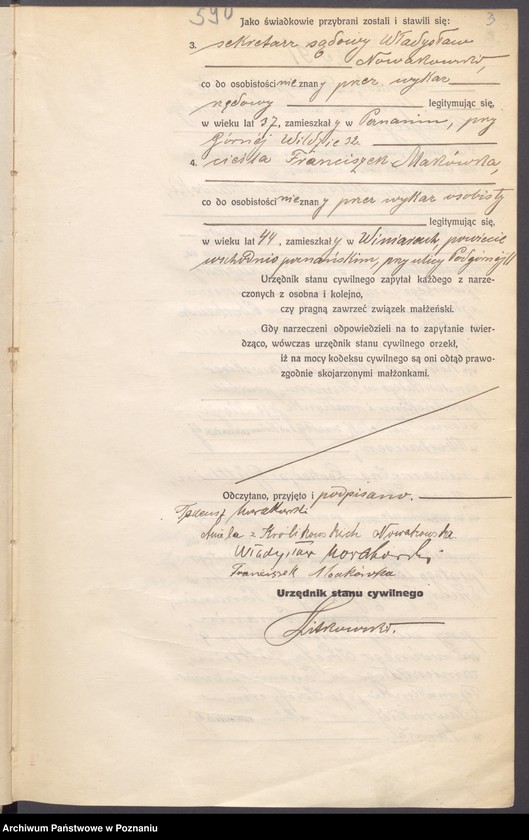 590
3
Jako świadkowie przybrani zostali i stawili się:
3. sekretarz sądowy Władysław
Nowakowski,
co do osobistości nieznany przez wykaz
legitymując się,
w wieku lat 37, zamieszkały w Poznaniu, przy
Górnej Wildzie 32.
4. cieśla Franciszek Makówka,
co do osobistości nieznany przez wykaz osobisty
legitymując się,
w wieku lat 44, zamieszkały w Winiarach, powiecie
wschodnio poznańskim, przy ulicy Podgórnej 11
Urzędnik stanu cywilnego zapytał każdego z narze-
czonych z osobna i kolejno,
czy pragną zawrzeć związek małżeński.
Gdy narzeczeni odpowiedzieli na to zapytanie twier-
dząco, wówczas urzędnik stanu cywilnego orzekł,
iż na mocy kodeksu cywilnego są oni odtąd prawo-
zgodnie skojarzonymi małżonkami.
Odczytano, przyjęto i podpisano.
Tadeusz Nowakowski
Aniela z Królikowskich Nowakowska
Władysław Nowakowski
Franciszek Makówka
Urzędnik stanu cywilnego
Archiwum Państwowe w Poznaniu